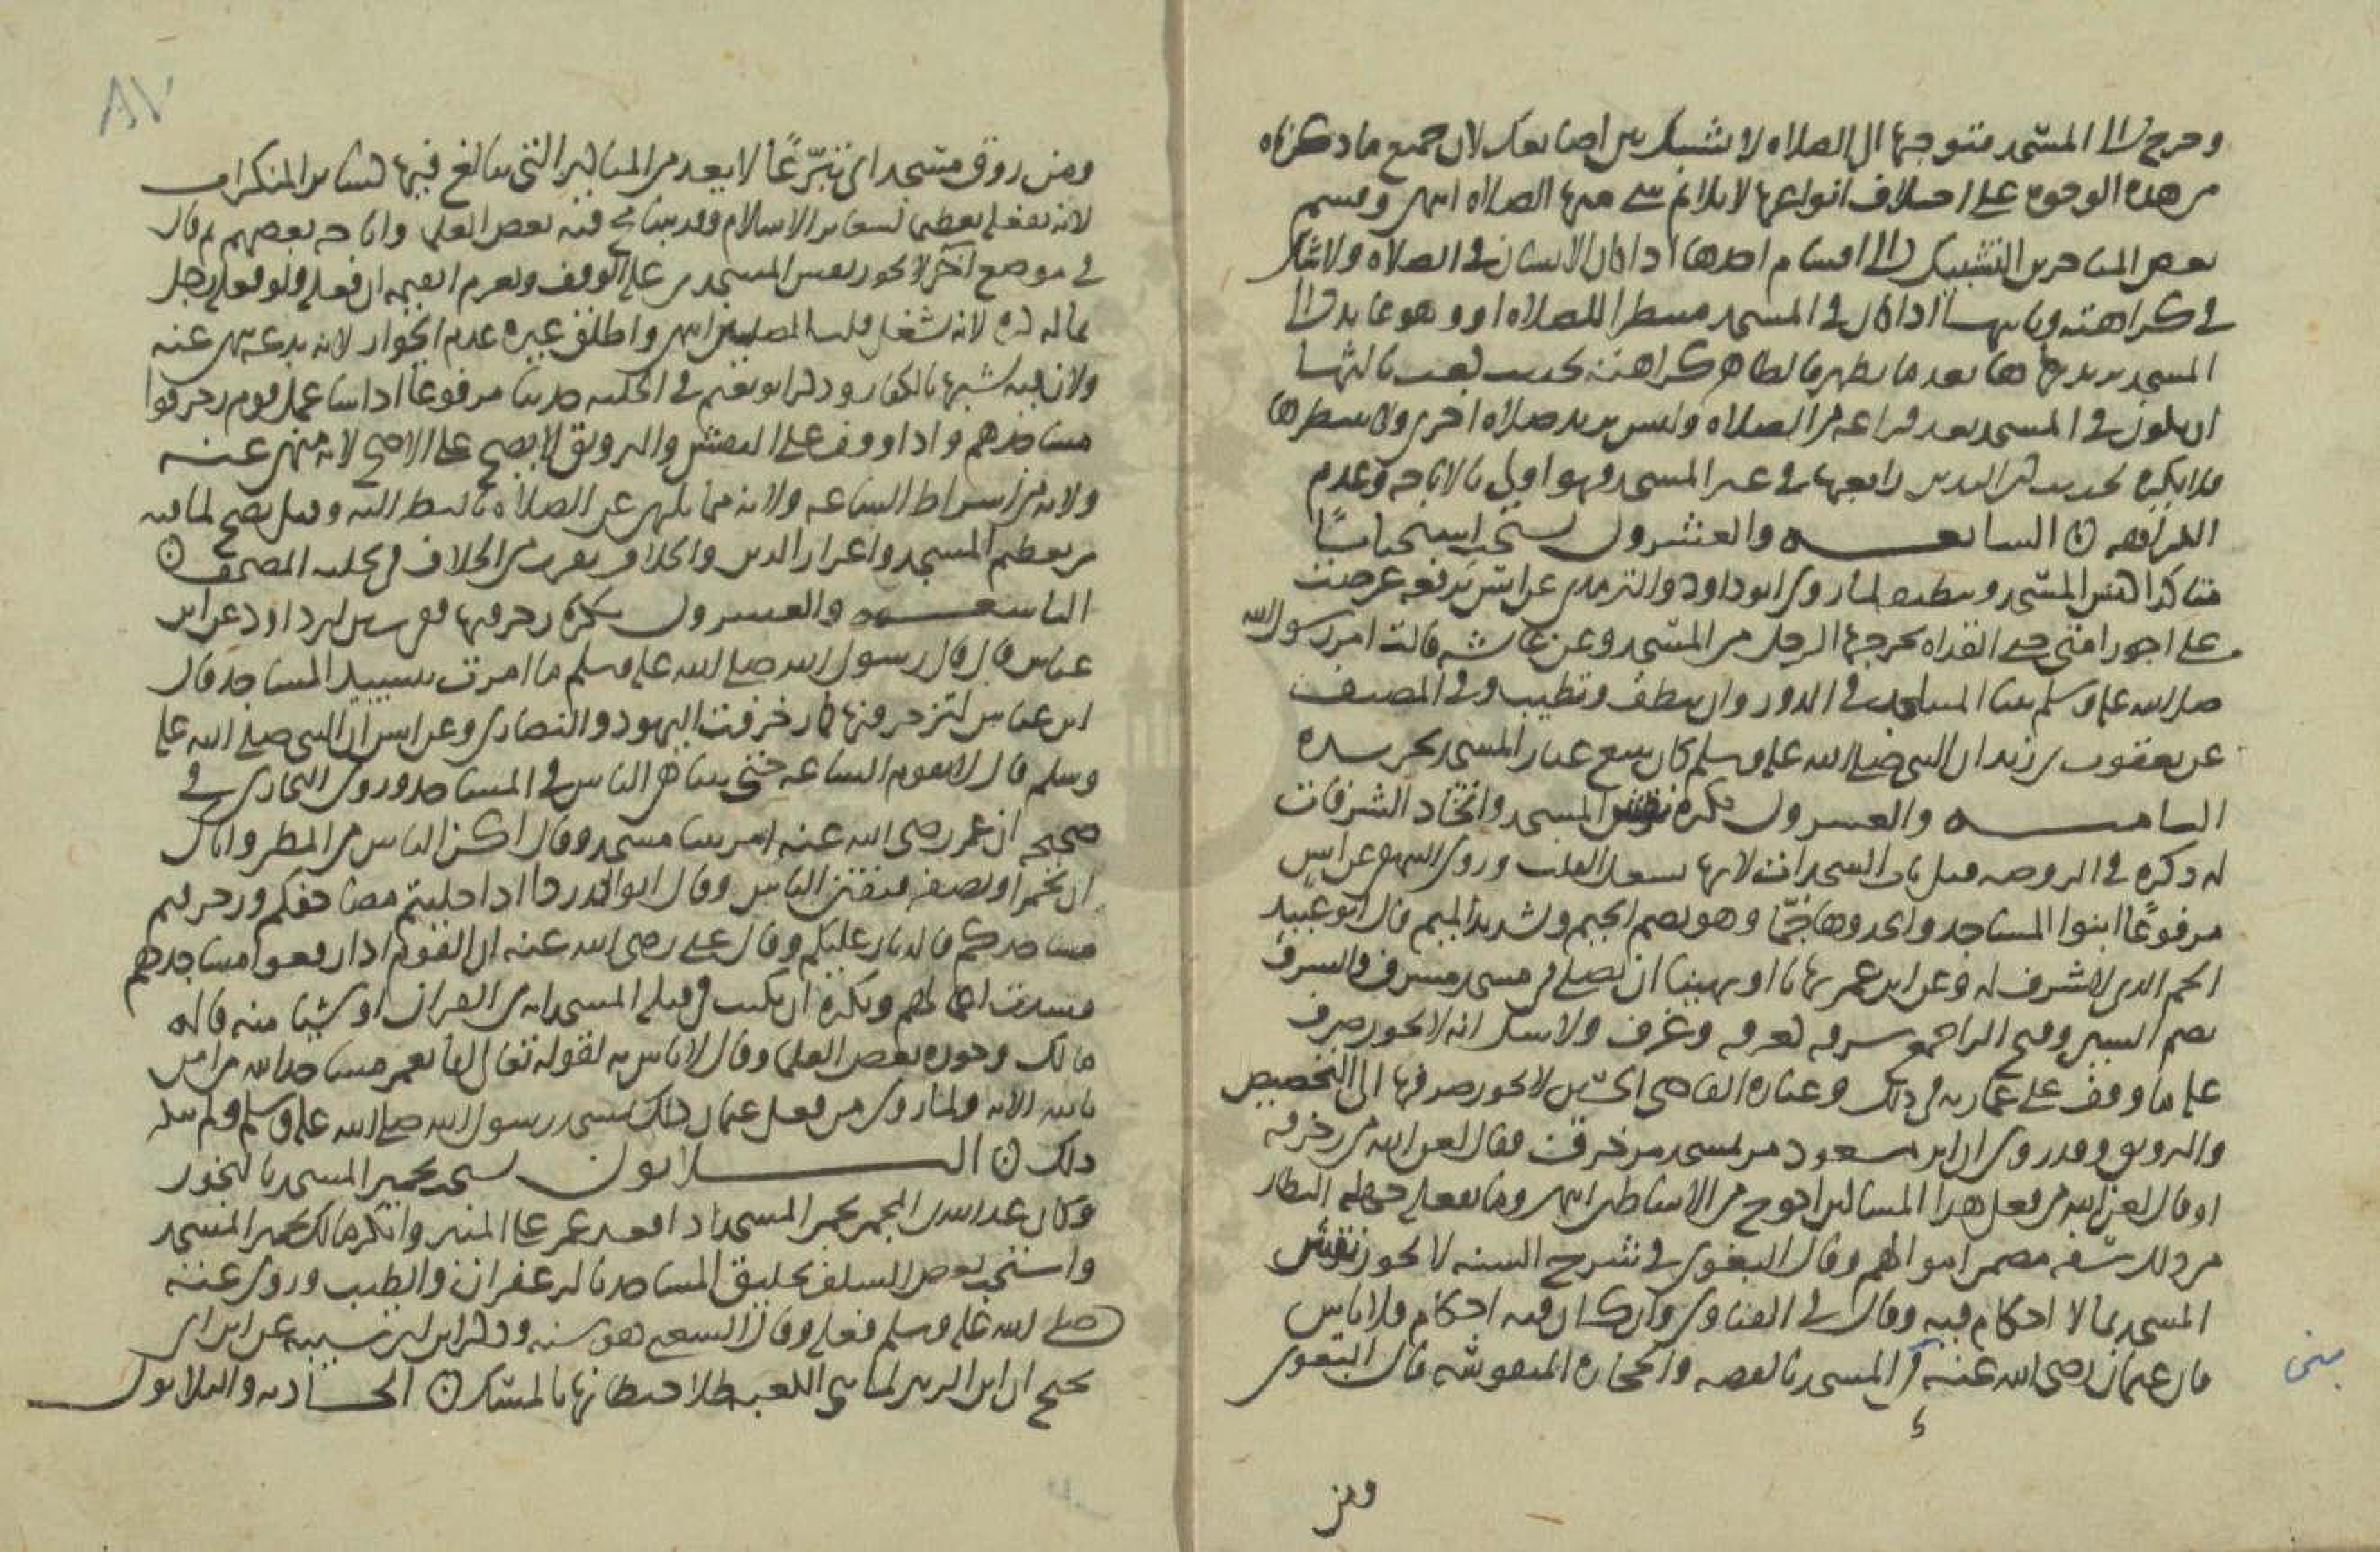 وخرج إلى المسجد متوجها إلى الصلاة لا تشبك بين أصابعك لأن جميع ما ذكرناه
من هذه الوجوه على اختلاف أنواعها لا يلائم شيء منها الصلاة انتهى وقسم
بعض المتأخرين التشبيك إلى أقسام أحدها إذا كان الإنسان في الصلاة ولا شك
في كراهته وثانيها إذا كان في المسجد منتظرا للصلاة أو وهو عامد إلى
المسجد يريدها بعد ما تطهر فالظاهر كراهته لحديث كعب ثالثها
أن يكون في المسجد بعد فراغه من الصلاة وليس يريد صلاة أخرى ولا ينتظرها
فلا يكره لحديث ذي اليدين رابعها في غير المسجد فهو أولى بالإباحة وعدم
الكراهة ن السابعة والعشرون يستحب استحبابًا
متأكدا كنس المسجد وتنظيفه لما روى أبو داود والترمذي عن أنس يرفعه عرضت
علي أجور أمتي حتى القذاة يخرجها الرجل من المسجد وعن عائشة قالت أمر رسول الله
صلى الله عليه وسلم ببناء المساجد في الدور وأن تنظف وتطيب وفي المصنف
عن يعقوب بن زيد أن النبي صلى الله عليه وسلم كان يتبع غبار المسجد بجريدة
الثامنة والعشرون يكره نقش المسجد واتخاذ الشرفات
له ذكره في الروضة قبل باب السجدات لأنها تشغل القلب وروى البيهقي عن أنس
مرفوعًا ابنوا المساجد واتخذوها جمًّا وهو بضم الجيم وتشديد الميم قال أبو عبيد
الجم الذي لا شرف له وعن ابن عمر نهانا أو نهينا أن نصلي في مسجد مشرف والشرف
بضم الشين وفتح الراء جمع شرفة كغرفة وغرف ولا شك أنه لا يجوز صرف
على ما وقف على عمارته في ذلك وعبارة القاضي الحسين لا يجوز صرفها إلى التجصيص
والتزويق وقد روي أن ابن مسعود مر بمسجد مزخرف فقال لعن الله من زخرفه
أو قال لعن الله من فعل هذا المساكين أحوج من الأساطين انتهى وما يفعله جهلة النظار
من ذلك سفه مضمن أموالهم وقال البغوي في شرح السنة لا يجوز تنقيش
المسجد بما لا إحكام فيه وقال في الفتاوى وإن كان فيه إحكام فلا بأس
فإن عثمان رضي الله عنه بنى المسجد بالقصة والحجارة المنقوشة قال البغوي
ومن
بنى
٨٧
ومن زوق مسجدا أي تبرّعًا لا يعد من المناكير التي يبالغ فيها كسائر المنكرات
لأنه يفعله تعظيما لشعائر الإسلام وقد يسامح فيه بعض العلماء وأباحه بعضهم ثم قال
في موضع آخر لا يجوز نقش المسجد من غلة الوقف ويغرم القيم إن فعله فلو فعله رجل
بماله كره لأنه يشغل قلب المصلين انتهى وأطلق غيره عدم الجواز لأنه بدعة منهي عنه
ولأن فيه تشبها بالكفار وذكر أبو نعيم في الحلية حديثا مرفوعًا إذا ساء عمل قوم زخرفوا
مساجدهم وإذا وقف على النقش والتزويق لا يصح على الأصح لأنه منهي عنه
ولأنه من أشراط الساعة ولأنه مما يلهي عن الصلاة بالنظر إليه وقيل يصح لما فيه
من تعظيم المسجد وإعزاز الدين والخلاف يقرب من الخلاف في تحلية المصحف ن
التاسعة والعشرون يكره زخرفتها ففي سنن أبي داود عن ابن
عباس قال قال رسول الله صلى الله عليه وسلم ما أمرت بتشييد المساجد قال
ابن عباس لتزخرفنها كما زخرفت اليهود والنصارى وعن أنس أن النبي صلى الله عليه
وسلم قال لا تقوم الساعة حتى يتباهى الناس في المساجد وروى البخاري في
صحيحه أن عمر رضي الله عنه أمر ببناء مسجد وقال أكن الناس من المطر وإياك
أن تحمر أو تصفر فتفتن الناس وقال أبو الدرداء إذا حليتم مصاحفكم وزخرفتم
مساجدكم فالدمار عليكم وقال علي رضي الله عنه إن القوم إذا رفعوا مساجدهم
فسدت أعمالهم ويكره أن يكتب في قبلة المسجد آية من القرآن أو شيئا منه قاله
مالك وجوزه بعض العلماء وقال لا بأس به لقوله تعالى إنما يعمر مساجد الله من آمن
بالله الآية ولما روي من فعل عثمان ذلك بمسجد رسول الله صلى الله عليه وسلم ولم ينكر
ذلك ن الثلاثون يستحب تجمير المسجد بالبخور
وكان عبد الله بن المجمر يجمر المسجد إذا قعد عمر على المنبر وأنكر مالك تجمير المسجد
واستحب بعض السلف تخليق المساجد بالزعفران والطيب وروي عنه
صلى الله عليه وسلم فعله وقال الشعبي هو سنة وذكر ابن أبي شيبة عن ابن أبي
نجيح أن ابن الزبير لما بنى الكعبة طلا حيطانها بالمسك ن الحادية والثلاثون